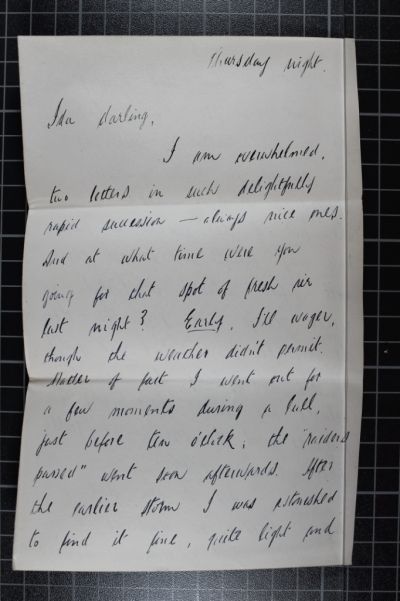 Thursday night.
Ida darling,
I am overwhelmed,
two letters in such delightfully
rapid succession — always nice ones.
And at what time were you
going for that spot of fresh air
last night? Early, I'll wager,
though the weather didn't permit.
Matter of fact I went out for
a few moments during a lull,
just before ten o'clock; the "raiders
passed" went soon afterwards. After
the earlier storm I was astonished
to find it fine, quite light and